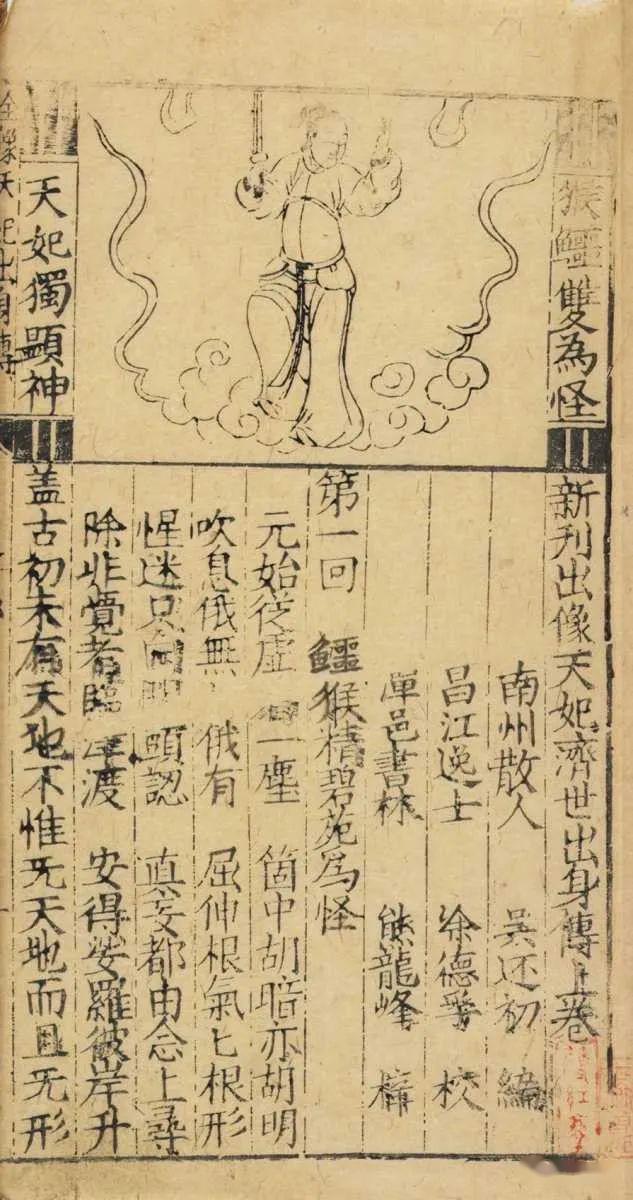 猴鱷雙為怪
天妃獨顯神
新刊出像天妃濟世出身傳上卷
南州散人 吳还初 編
昌江逸士 徐德孚 校
潭邑書林 熊龍峰 梓
第一回 鱷猴精碧苑為怪
元始從虛 一塵 箇中胡暗亦胡明
吹息俄無 俄有 屈伸根氣匕根形
惺迷只向 頭認 真妄都由念上尋
除非覺者臨 渡 安得婆羅彼岸升
盖古初未有天地不惟无天地而且无形
全像天妃出身傳